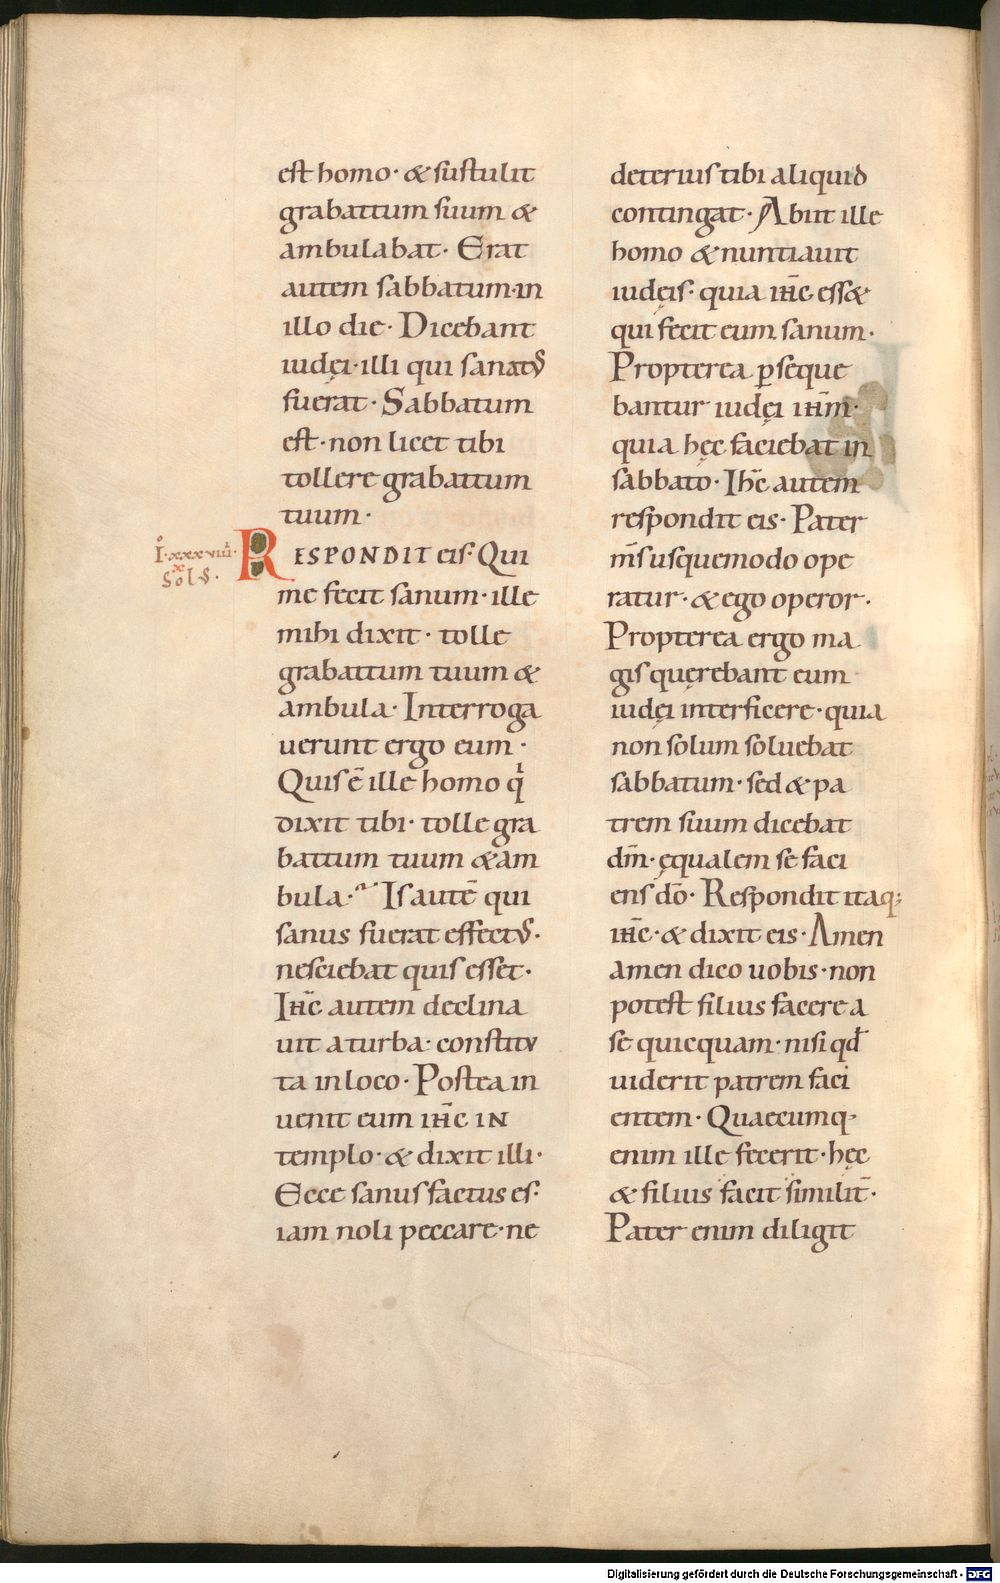 est homo · & sustulit
grabattum suum &
ambulabat · Erat
autem sabbatum · in
illo die · Dicebant
iudęi · illi qui sanatus
fuerat · Sabbatum
est · non licet tibi
tollere grabattum
tuum ·
I · xxxviiii ·
RESPONDIT eis · Qui
x
Sol ·
me fecit sanum · ille
mihi dixit · tolle
grabattum tuum &
ambula · Interroga
uerunt ergo eum ·
Quis ē ille homo qi
dixit tibi · tolle gra
battum tuum & am
bula · Is autē qui
sanus fuerat effectus ·
nesciebat quis esset ·
Ihc̄ autem declina
uit a turba · constitu
ta in loco · Postea in
uenit eum ihc̄ in
templo · & dixit illi ·
Ecce sanus factus es ·
iam noli peccare · ne
deterius tibi aliquid
contingat · Abiit ille
homo & nuntiauit
iudęis · quia ihc̄ ess&
qui fecit eum sanum ·
Propterea ꝑseque
bantur iudęi ihm̄ ·
quia hęc faciebat in
sabbato · Ihc̄ autem
respondit eis · Pater
ms̄ usque modo ope
ratur · & ego operor ·
Propterea ergo ma
gis quęrebant eum
iudęi interficere · quia
non solum soluebat
sabbatum · sed & pa
trem suum dicebat
dm̄ · ęqualem se faci
ens dō · Respondit itaq;
ihc̄ · & dixit eis · Amen
amen dico uobis · non
potest filius facere a
se quicquam · nisi qđ
uiderit patrem faci
entem · Quaecumq;
enim ille fecerit · hęc
& filius facit similit̄ ·
Pater enim diligit
Digitalisierung gefördert durch die Deutsche Forschungsgemeinschaft - DFG